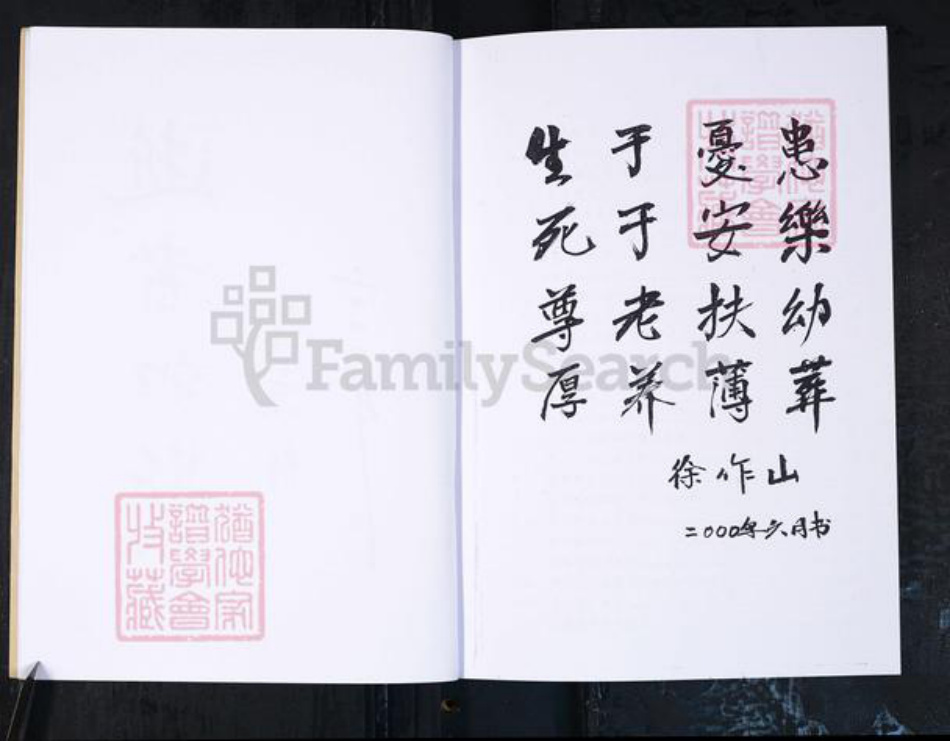 生于憂患
死于安樂
尊老扶幼
厚养薄葬
徐作山
二000年六月书
FamilySearch
猶他家
譜學會
收藏